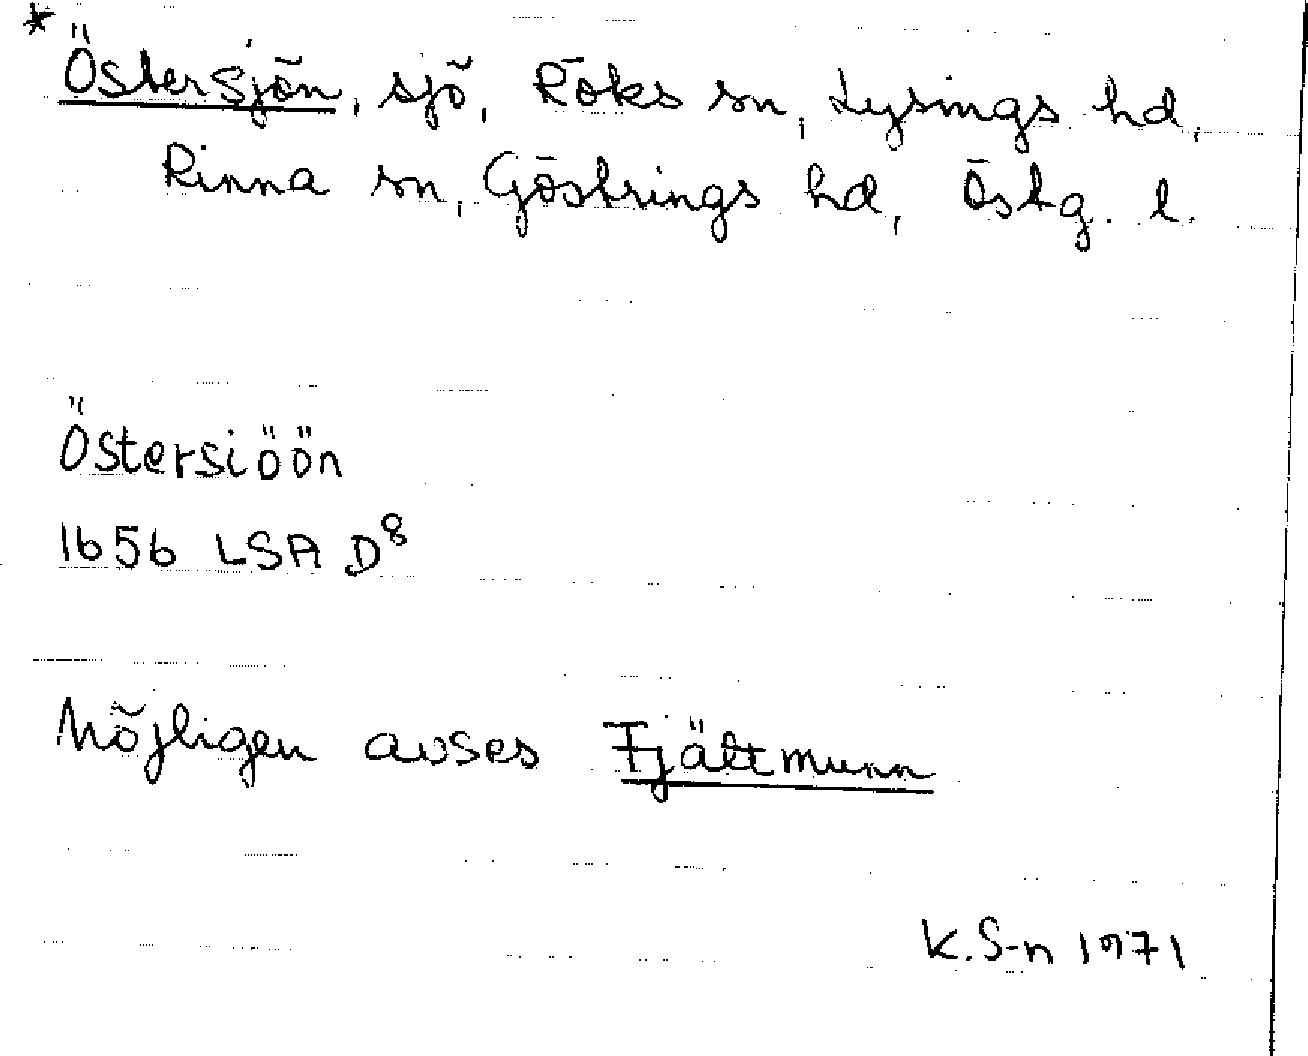 * Östersjön, sjö, Röks sn, Lysings hd,
Rinna sn, Göstrings hd, Östg. l.
Östersiöön
1656 LSA D⁸
Möjligen avses Fjältmunn
K.S-n 1971